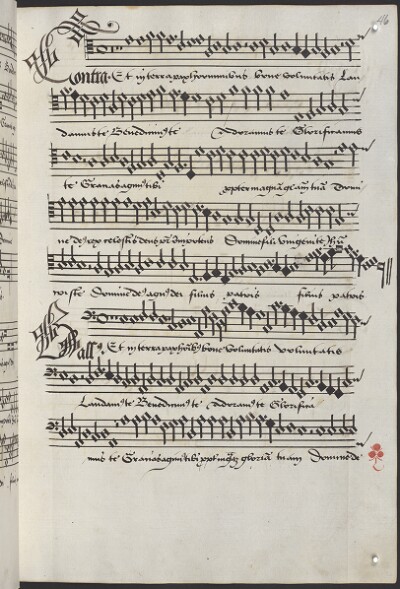 46
Contra Et in terra pax hominibus bone voluntatis Lau
damus te Benedicimus te Adoramus te Glorificamus
te Gracias agimus tibi propter magnam gloriam tuam Domi
ne deus rex celestis deus pater omnipotens Domine fili unigenite
Domine deus agnus dei filius patris filius patris
Bassus Et in terra pax hominibus bone voluntatis voluntatis
Laudamus te Benedicimus te Adoramus te Glorifica
mus te Gracias agimus tibi propter magnam gloriam tuam Domine de